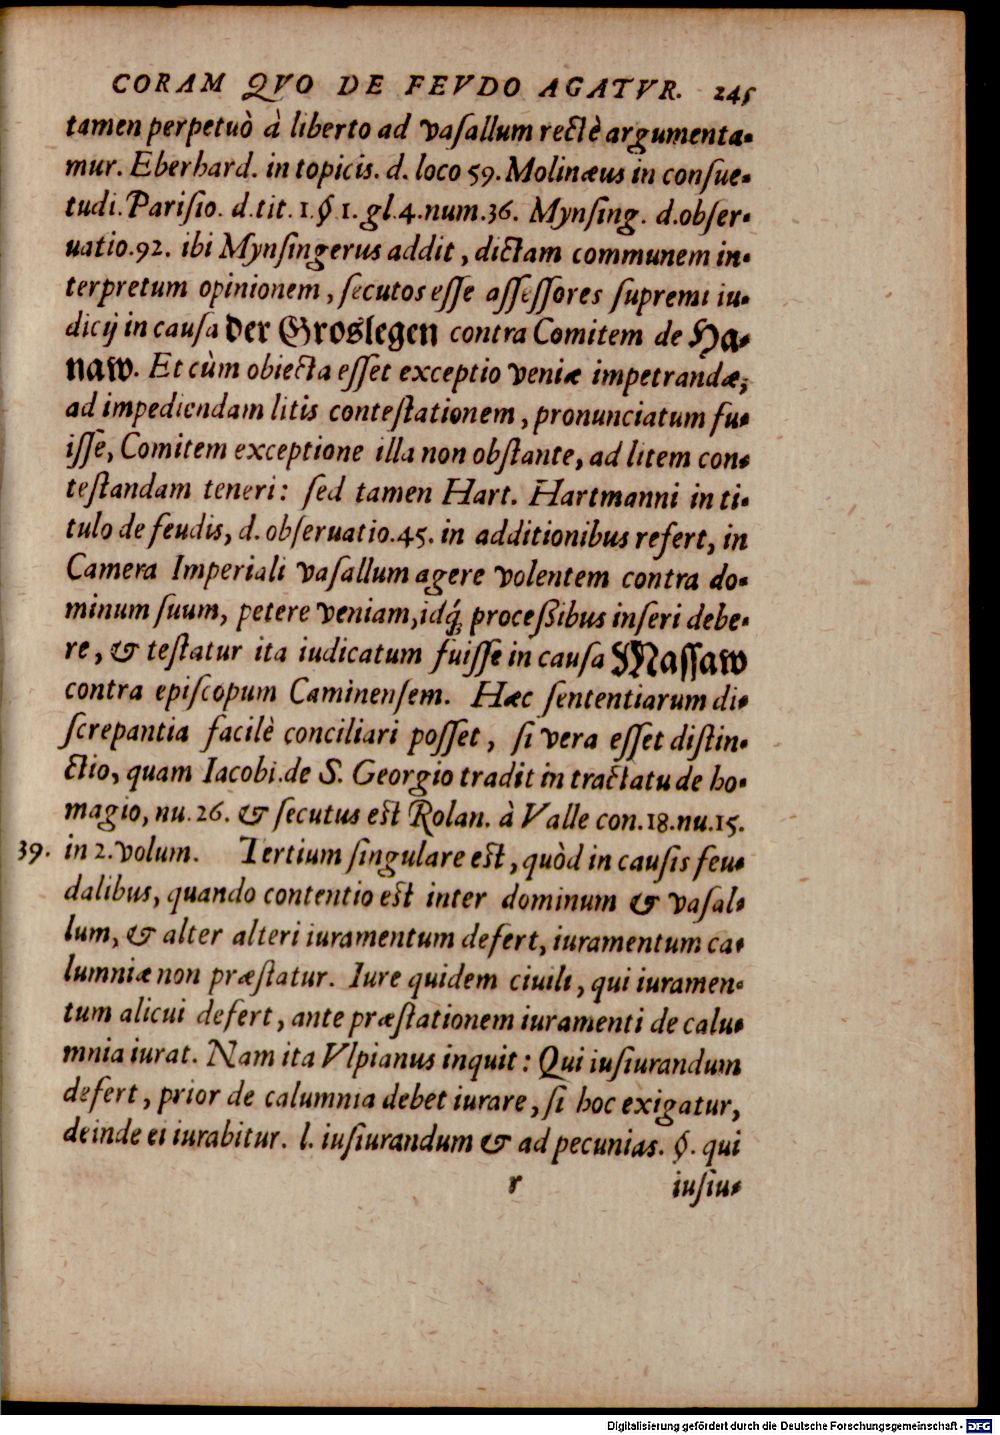 CORAM QVO DE FEVDO AGATVR. 245
tamen perpetuò à liberto ad vaſallum rectè argumenta-
mur. Eberhard. in topicis. d. loco 59. Molinæus in conſue-
tudi. Pariſio. d. tit. 1. § 1. gl. 4. num. 36. Mynſing. d. obſer-
uatio. 92. ibi Mynſingerus addit, dictam communem in-
terpretum opinionem, ſecutos eſſe aſſeſſores ſupremi iu-
dicij in cauſa der Groslegen contra Comitem de Ha-
naw. Et cùm obiecta eſſet exceptio veniæ impetrandæ,
ad impediendam litis conteſtationem, pronunciatum fu-
iſſe, Comitem exceptione illa non obſtante, ad litem con-
teſtandam teneri: ſed tamen Hart. Hartmanni in ti-
tulo de feudis, d. obſeruatio. 45. in additionibus refert, in
Camera Imperiali vaſallum agere volentem contra do-
minum ſuum, petere veniam, idq́; proceßibus inſeri debe-
re, & teſtatur ita iudicatum fuiſſe in cauſa Maſſaw
contra epiſcopum Caminenſem. Hæc ſententiarum di-
ſcrepantia facilè conciliari poſſet, ſi vera eſſet diſtin-
ctio, quam Iacobi. de S. Georgio tradit in tractatu de ho-
magio, nu. 26. & ſecutus eſt Rolan. à Valle con. 18. nu. 15.
39. in 2. volum. Tertium ſingulare eſt, quòd in cauſis feu-
dalibus, quando contentio eſt inter dominum & vaſal-
lum, & alter alteri iuramentum defert, iuramentum ca-
lumniæ non præſtatur. Iure quidem ciuili, qui iuramen-
tum alicui defert, ante præſtationem iuramenti de calu-
mnia iurat. Nam ita Vlpianus inquit: Qui iuſiurandum
defert, prior de calumnia debet iurare, ſi hoc exigatur,
deinde ei iurabitur. l. iuſiurandum & ad pecunias. §. qui
r iuſiu-
Digitalisierung gefördert durch die Deutsche Forschungsgemeinschaft - DFG